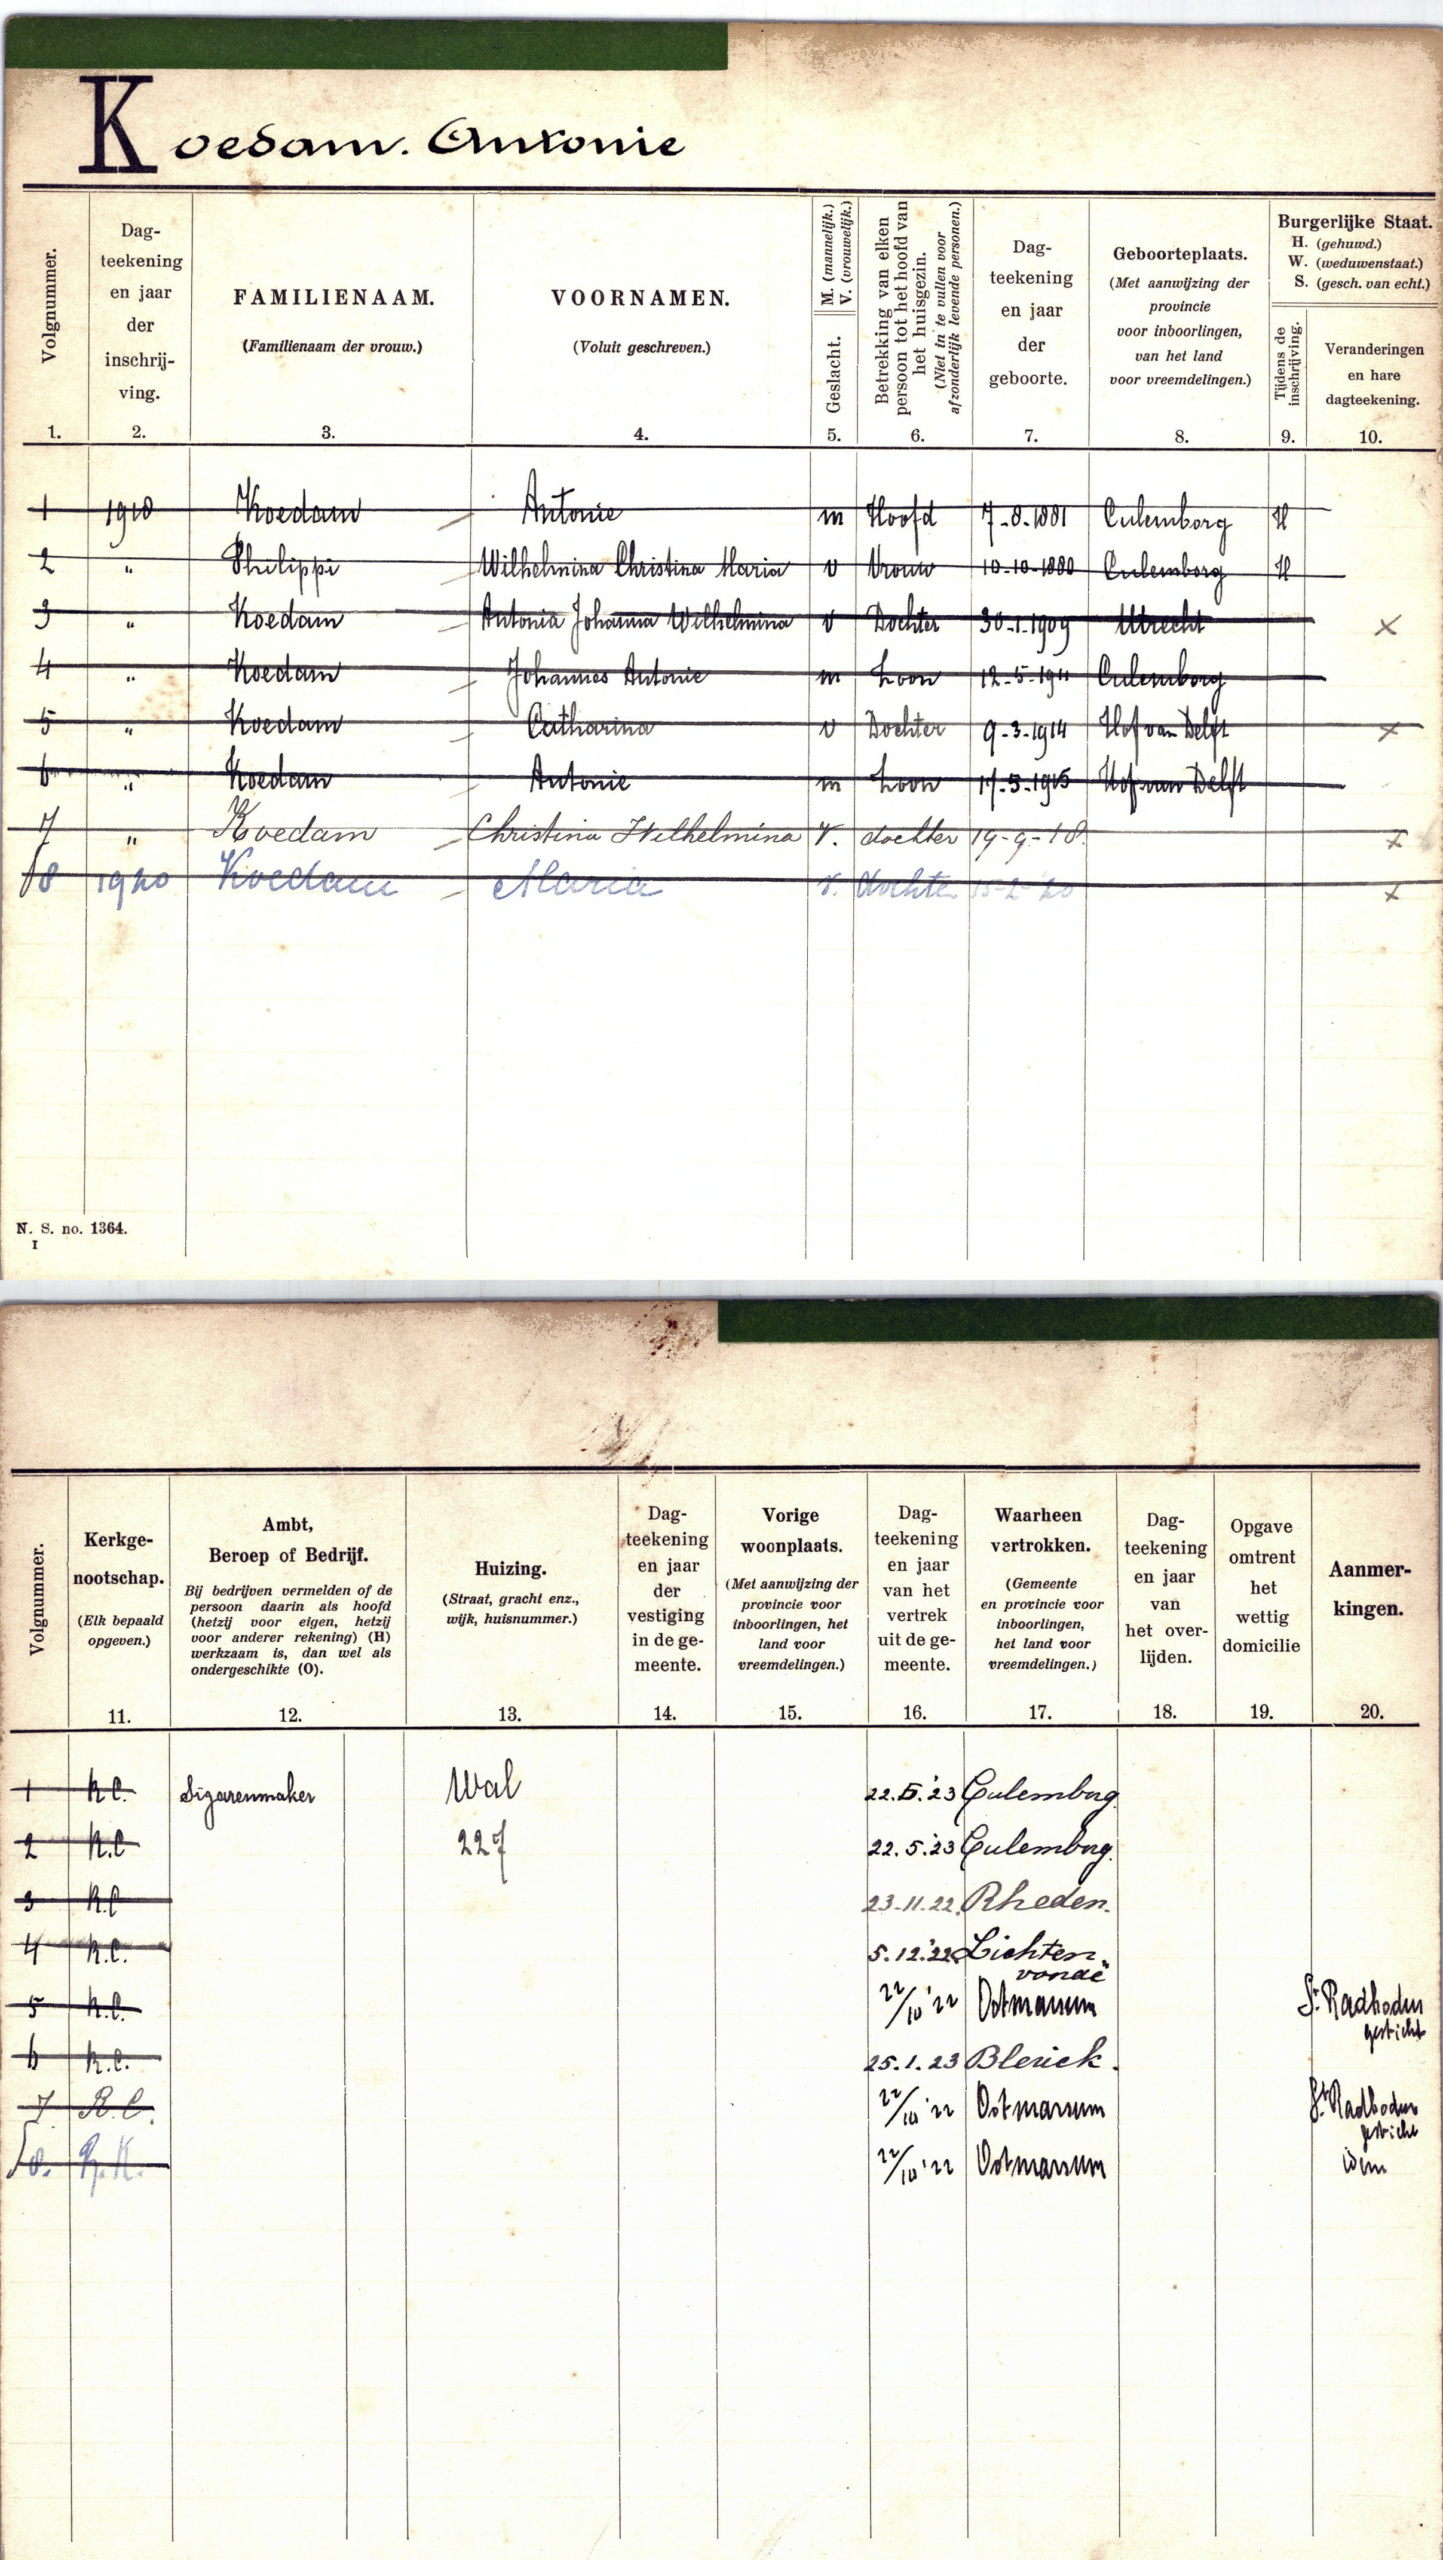 Koedam. Antonie
Volgnummer.
Dag-
teekening
en jaar
der
inschrij-
ving.
FAMILIENAAM.
(Familienaam der vrouw.)
VOORNAMEN.
(Voluit geschreven.)
Geslacht.
M. (mannelijk.)
V. (vrouwelijk.)
Betrekking van elken
persoon tot het hoofd van
het huisgezin.
(Niet in te vullen voor
afzonderlijk levende personen.)
Dag-
teekening
en jaar
der
geboorte.
Geboorteplaats.
(Met aanwijzing der
provincie
voor inboorlingen,
van het land
voor vreemdelingen.)
Burgerlijke Staat.
H. (gehuwd.)
W. (weduwenstaat.)
S. (gesch. van echt.)
Tijdens de
inschrijving.
Veranderingen
en hare
dagteekening.
1. 2. 3. 4. 5. 6. 7. 8. 9. 10.
1 1918 Koedam Antonie m Hoofd 7-8-1881 Culemborg H
2 " Philippi Wilhelmina Christina Maria v Vrouw 10-10-1880 Culemborg H
3 " Koedam Antonia Johanna Wilhelmina v Dochter 30-1-1909 Utrecht x
4 " Koedam Johannes Antonie m Zoon 12-5-1911 Culemborg
5 " Koedam Catharina v Dochter 9-3-1914 Hof van Delft x
6 " Koedam Antonie m Zoon Hof van Delft
7 " Koedam Christina Wilhelmina V. dochter 19-9-18. x
8 1920 Koedam Maria v. dochter 15-2-20 x
N. S. no. 1364.
I
Volgnummer.
Kerkge-
nootschap.
(Elk bepaald
opgeven.)
Ambt,
Beroep of Bedrijf.
Bij bedrijven vermelden of de
persoon daarin als hoofd
(hetzij voor eigen, hetzij
voor anderer rekening) (H)
werkzaam is, dan wel als
ondergeschikte (O).
Huizing.
(Straat, gracht enz.,
wijk, huisnummer.)
Dag-
teekening
en jaar
der
vestiging
in de ge-
meente.
Vorige
woonplaats.
(Met aanwijzing der
provincie voor
inboorlingen, het
land voor
vreemdelingen.)
Dag-
teekening
en jaar
van het
vertrek
uit de ge-
meente.
Waarheen
vertrokken.
(Gemeente
en provincie voor
inboorlingen,
het land voor
vreemdelingen.)
Dag-
teekening
en jaar
van
het over-
lijden.
Opgave
omtrent
het
wettig
domicilie
Aanmer-
kingen.
11. 12. 13. 14. 15. 16. 17. 18. 19. 20.
1 R.C. Sigarenmaker Wal 22.5.'23 Culemburg.
2 R.C 227 22.5.'23 Culemburg.
3 R.C 23-11.22. Rheden.
4 R.C. 5.12.'22. Lichten-
voorde
5 R.C. 22/10 '22 Ootmarsum St. Radbodus
gesticht
6 R.C. 25.1.23 Blerick.
7 R.C. 22/10 '22 Ootmarsum St. Radbodus
gesticht
8. R.K. 22/10 '22 Ootmarsum idem